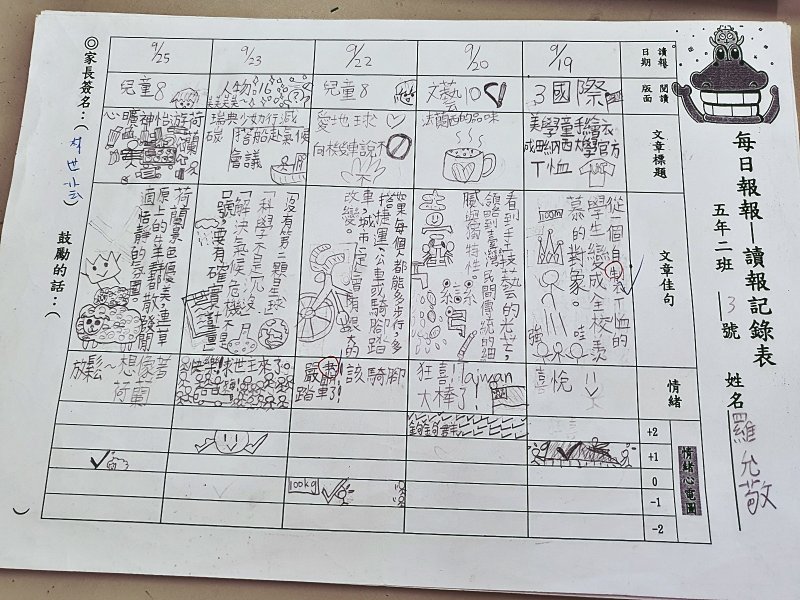 每日報報—讀報記錄表
五年二班 3號 姓名 羅允敬
讀報日期
閱讀版面
文章標題
文章佳句
情緒
情緒心電圖
+2
+1
0
-1
-2
9/19
3國際
美學童手繪衣
成田納西大學官方
T恤
從一個自製T恤的
學生變成全校羨
慕的對象。
100m
強
哇
喜悅
9/20
文藝10
法蘭西的品味
看到手工技藝的光芒,
領略到臺灣民間傳統的細
膩與獨特性。
狂喜!Taiwan
大棒了!
9/22
兒童8
愛地球
向梭哈車說不
當每個人都能多步行、多
搭捷運、公車或騎腳踏
車,城市一定會有很大的
改變。
嚴肅!該騎腳
踏車了!
100kg
9/23
人物16
瑞典少女力行減
碳 搭船赴氣候
會議
「沒有第二顆星球」
「科學不是冗沒」
「解決氣候危機不是
口號,要有確實計畫」
快樂!救世主來了。
9/25
兒童8
心曠神怡遊荷蘭
荷蘭景色優美,連草
原上的牛羊群都散發閒
適恬靜的氛圍。
放鬆~想像著
荷蘭
◎家長簽名:( )
鼓勵的話:( )